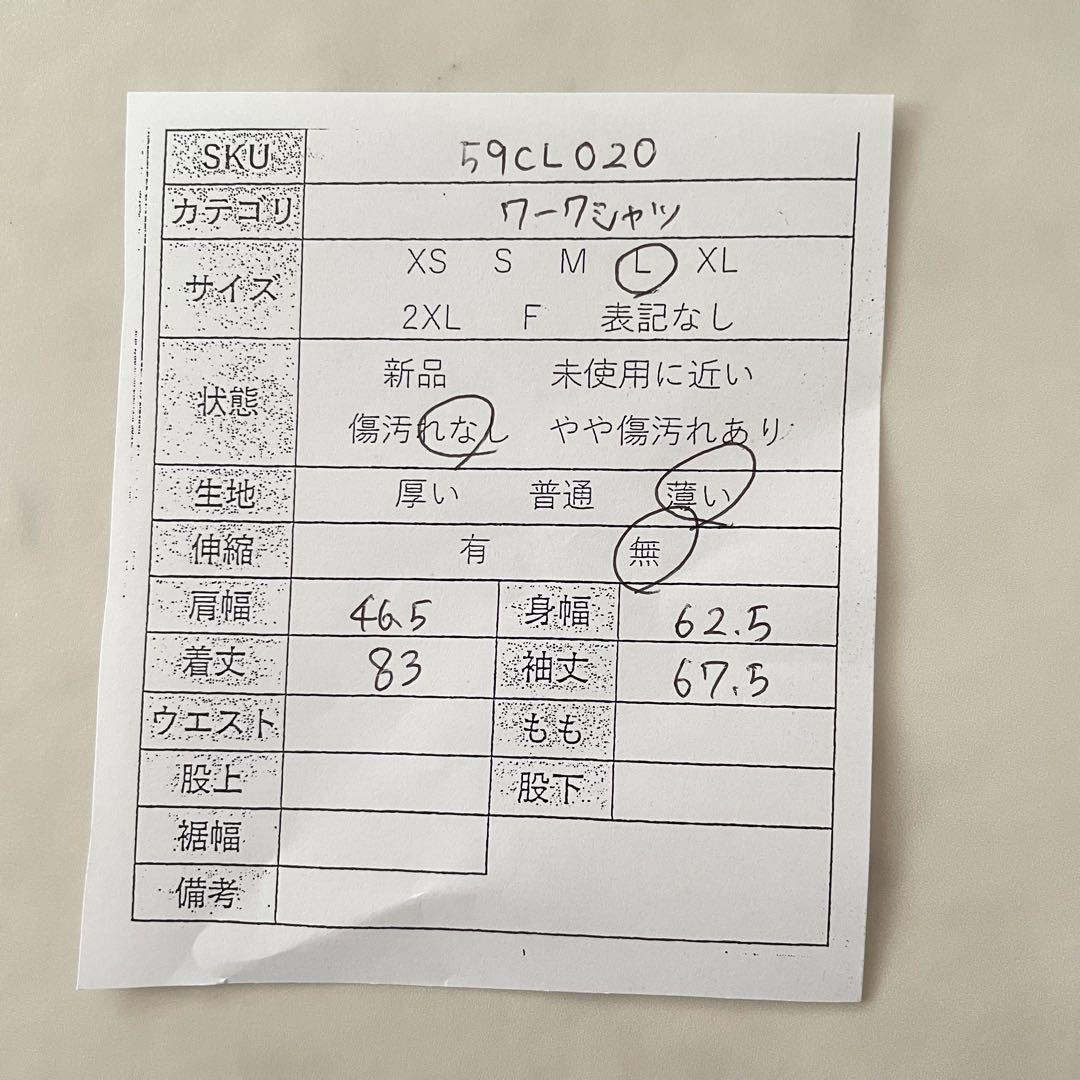 SKU 59CL020
カテゴリ ワークシャツ
サイズ XS S M L XL
2XL F 表記なし
状態 新品 未使用に近い
傷汚れなし やや傷汚れあり
生地 厚い 普通 薄い
伸縮 有 無
肩幅 46.5 身幅 62.5
着丈 83 袖丈 67.5
ウエスト もも
股上 股下
裾幅
備考